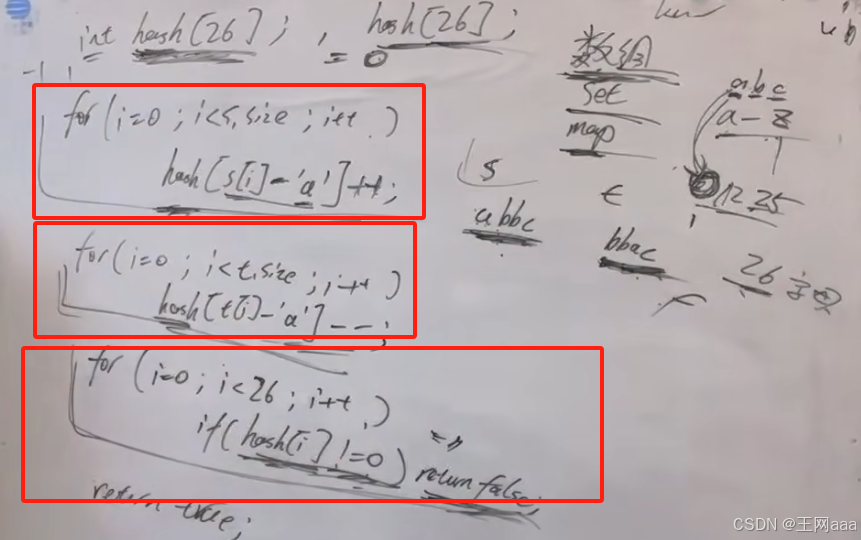 int hash[26]; , hash[26];
= 0
for (i=0 ; i<s.size ; i++ )
hash[s[i]-'a']++;
for (i=0 ; i<t.size ; i++ )
hash[t[i]-'a']--;
for (i=0 ; i<26 ; i++ )
if(hash[i] !=0) return false;
return true;
数组
set
map
s
abbc
t
bbac
abc
a-z
0 12 25
26字母
CSDN @王网aaa